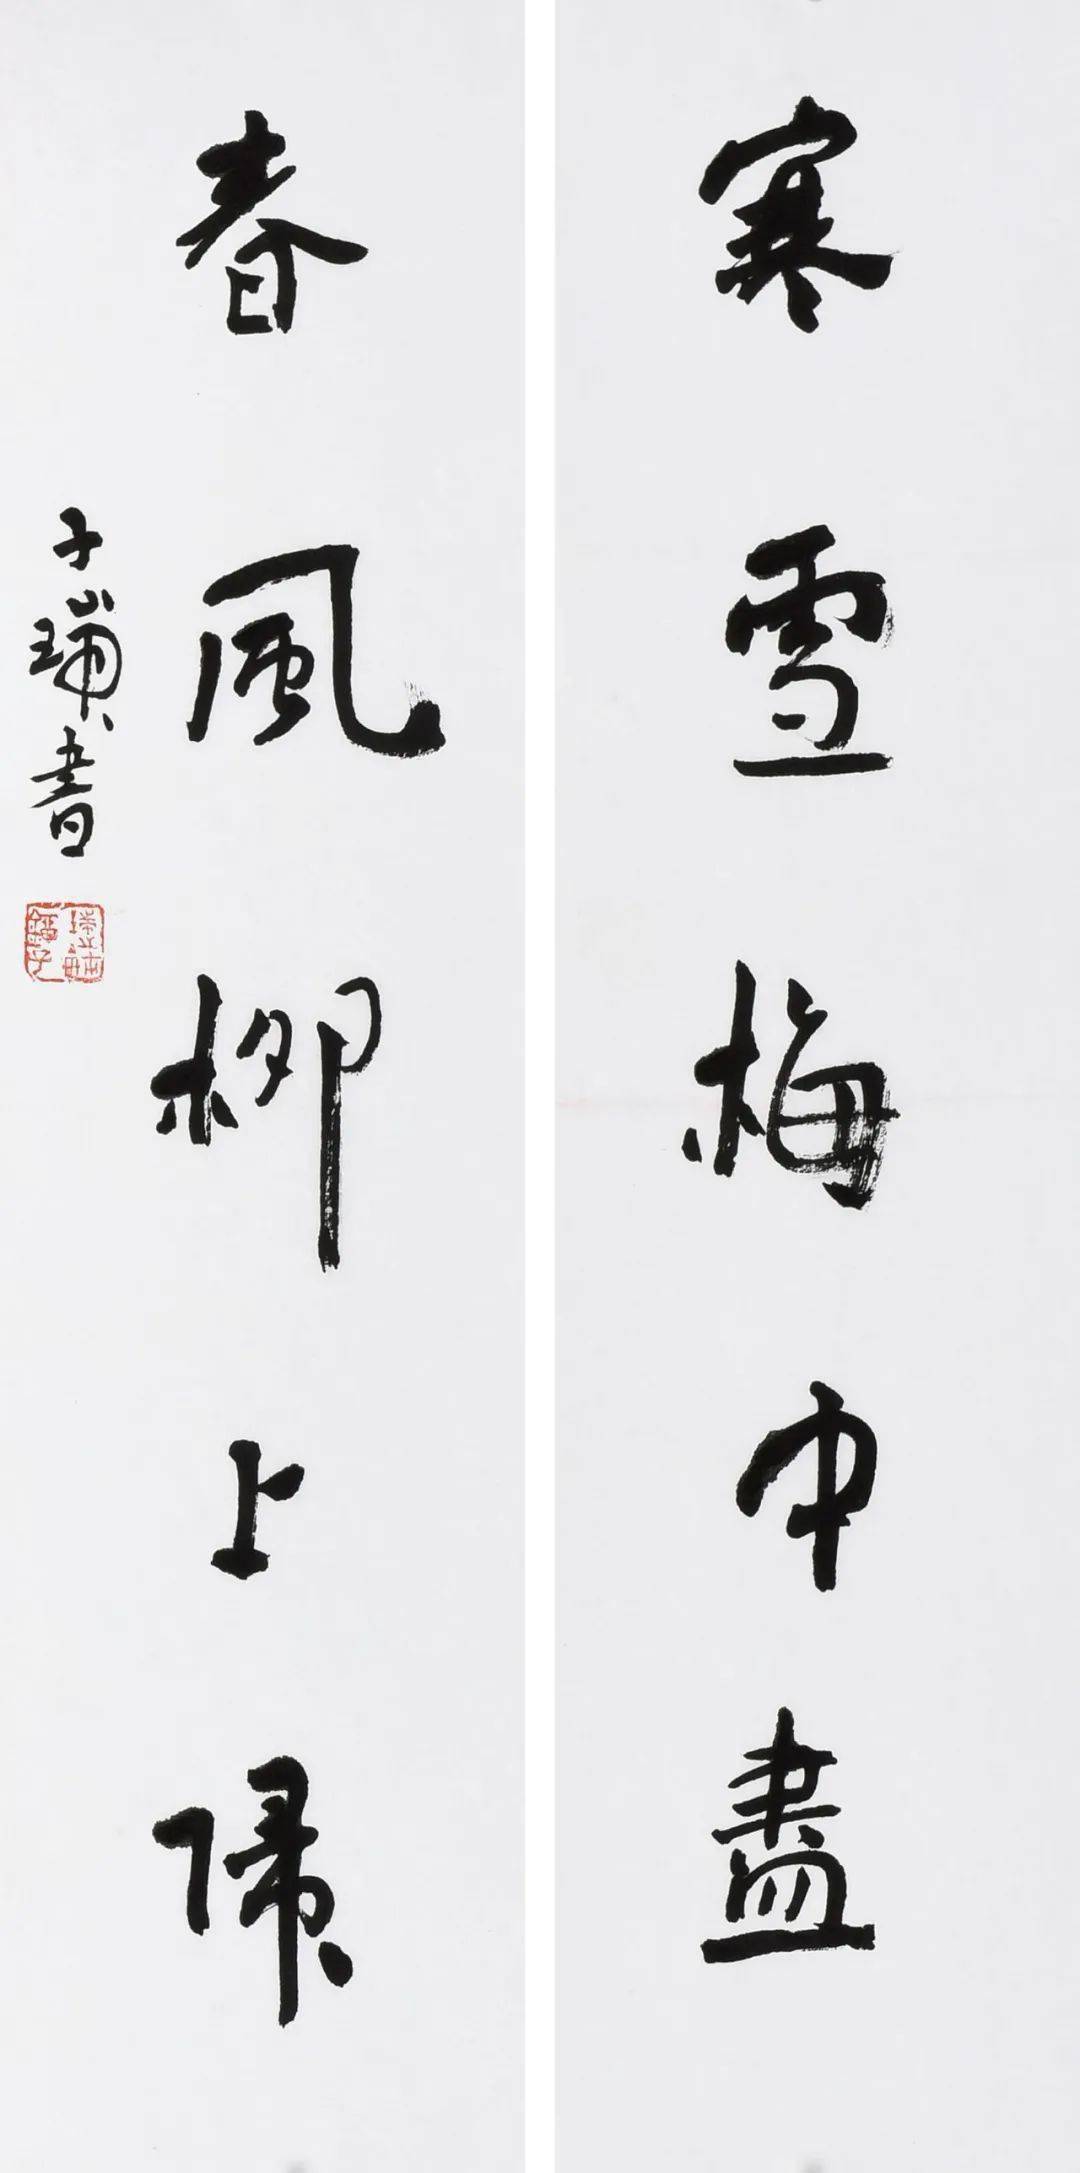 寒雪梅中盡
春風柳上歸
子瑞書